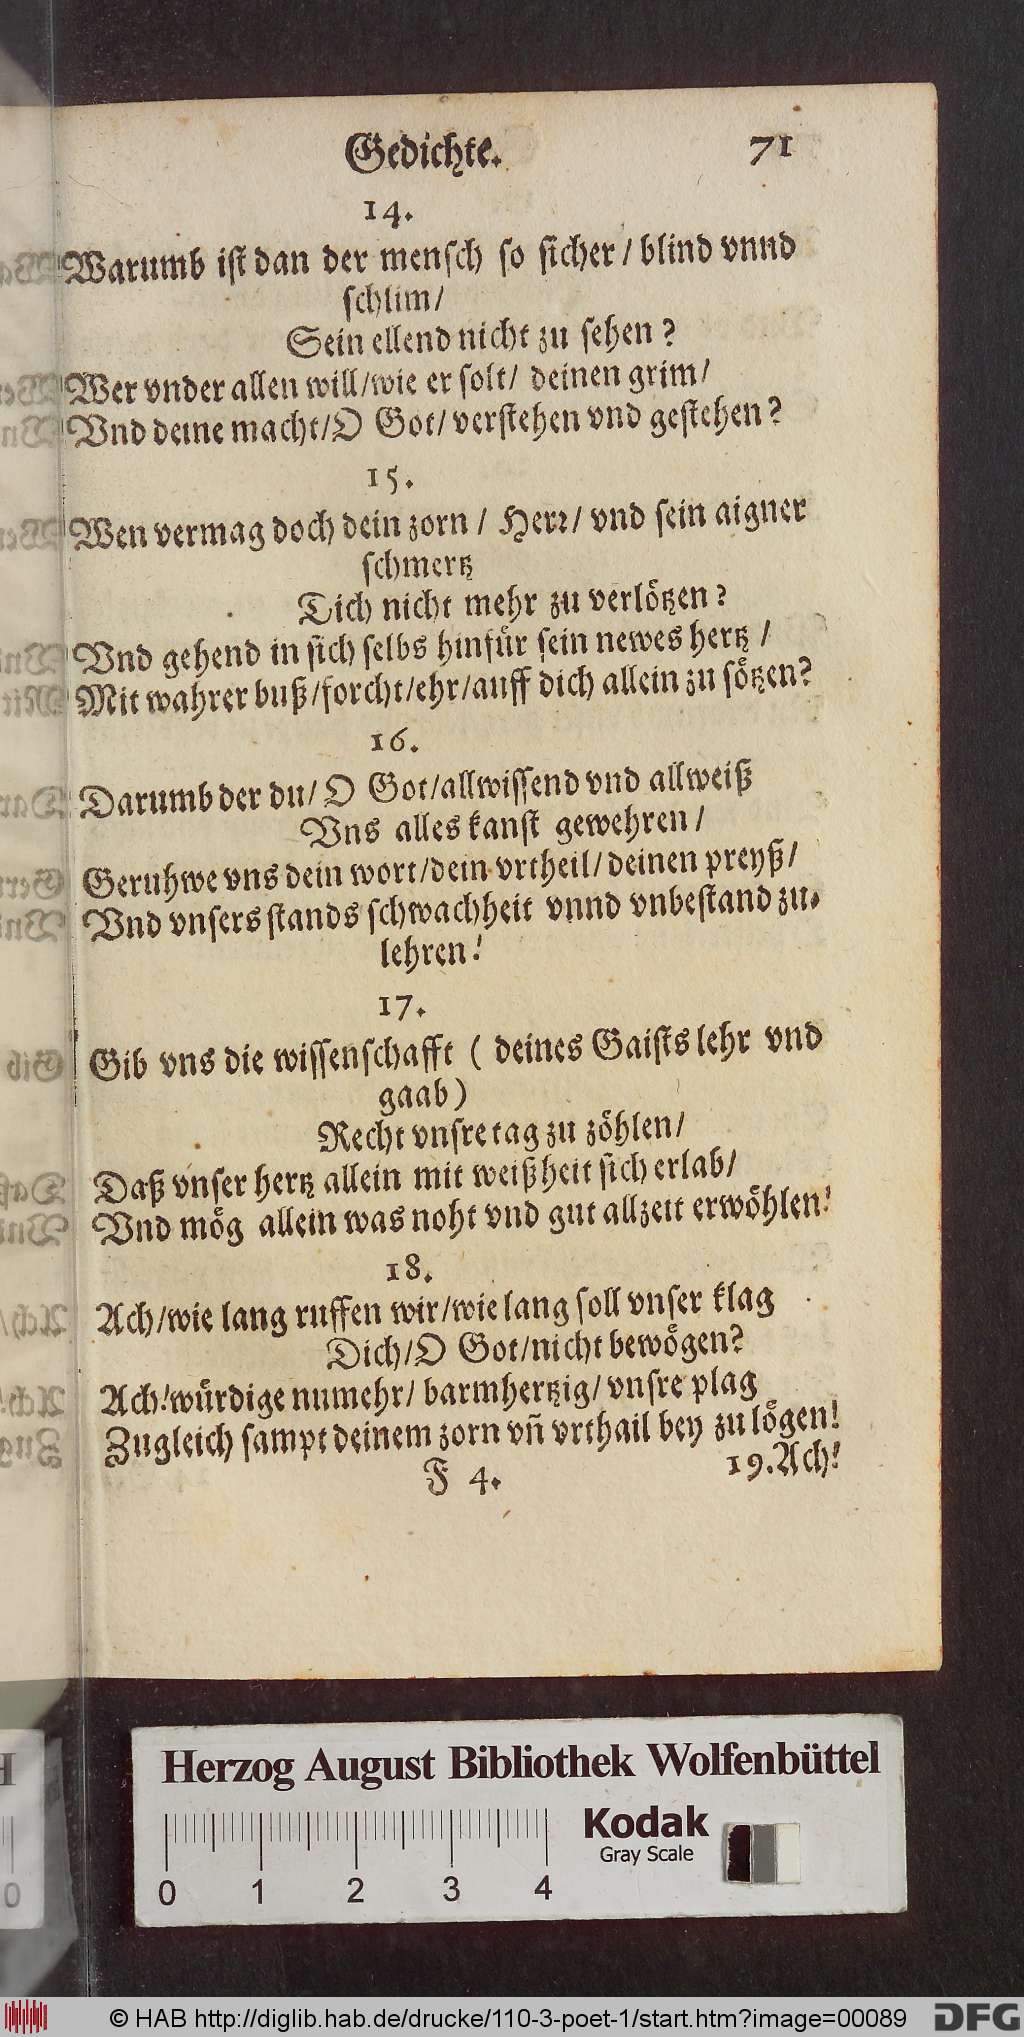 Gedichte. 71
14.
Warumb ist dan der mensch so sicher / blind vnnd
schlim /
Sein ellend nicht zu sehen ?
Wer vnder allen will / wie er solt / deinen grim /
Vnd deine macht / O Got / verstehen vnd gestehen ?
15.
Wen vermag doch dein zorn / Herr / vnd sein aigner
schmertz
Dich nicht mehr zu verlötzen ?
Vnd gehend in sich selbs hinfür sein newes hertz /
Mit wahrer buß / forcht / ehr / auff dich allein zu sötzen ?
16.
Darumb der du / O Got / allwissend vnd allweiß
Vns alles kanst gewehren /
Geruhwe vns dein wort / dein vrtheil / deinen preyß /
Vnd vnsers stands schwachheit vnnd vnbestand zu-
lehren !
17.
Gib vns die wissenschafft ( deines Gaists lehr vnd
gaab )
Recht vnsre tag zu zöhlen /
Daß vnser hertz allein mit weißheit sich erlab /
Vnd mög allein was noht vnd gut allzeit erwöhlen !
18.
Ach / wie lang ruffen wir / wie lang soll vnser klag
Dich / O Got / nicht bewögen ?
Ach ! würdige numehr / barmhertzig / vnsre plag
Zugleich sampt deinem zorn vñ vrthail bey zu lögen !
F 4. 19. Ach !
Herzog August Bibliothek Wolfenbüttel
Kodak
Gray Scale
0 1 2 3 4
© HAB http://diglib.hab.de/drucke/110-3-poet-1/start.htm?image=00089
DFG